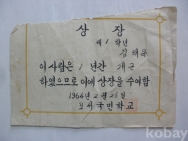 상장
제 1 학년
이 사람은 1 년간 개근
하였으므로 이에 상장을 수여함
1964年 2月
국민학교
kobay